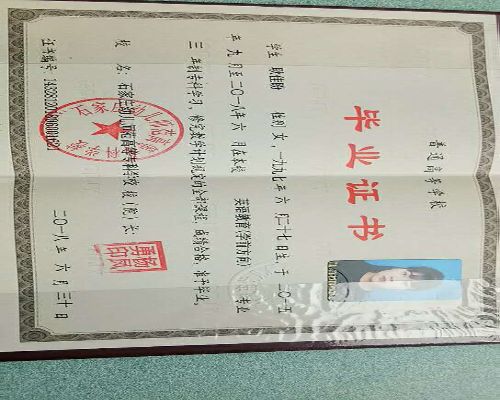 普通高等学校
毕业证书
学生 耿佳盼 性别 女，一九九七年 六 月二十七日生，于 二〇一五
年 九 月至二〇一八年 六 月在本校 英语教育(学前方向) 专业
三 年制专科学习，修完教学计划规定的全部课程，成绩合格，准予毕业。
校 名： 石家庄幼儿师范高等专科学校 校（院）长：
证书编号： 二〇一八年 六 月三十日